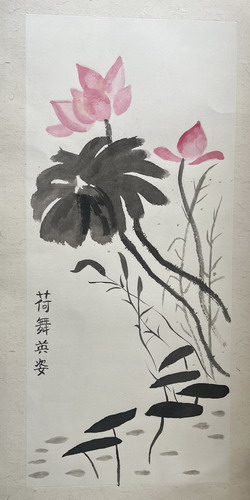 荷舞英姿